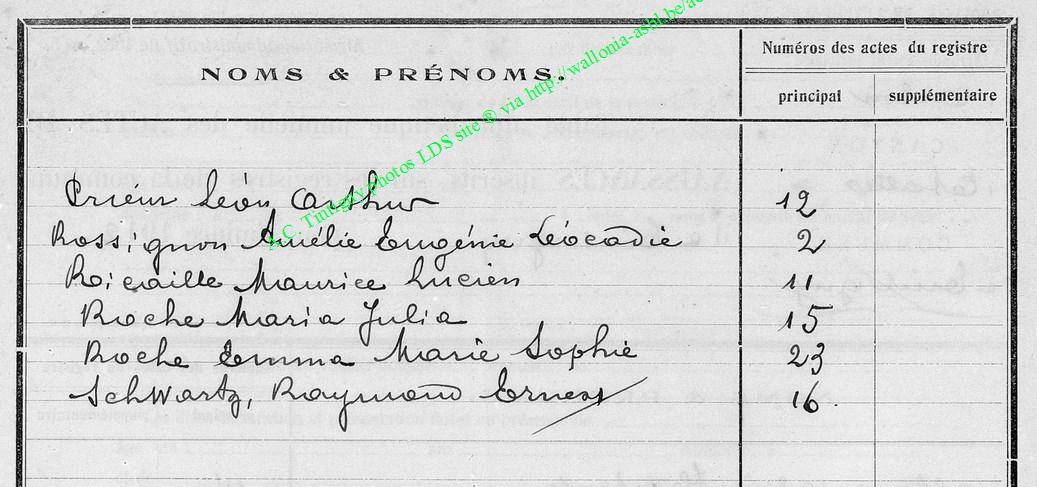 A.C. Tintigny photos LDS site ® via http://wallonia-asbl.be/ac
NOMS & PRÉNOMS.
Numéros des actes du registre
principal
supplémentaire
Prieur Léon Arthur 12
Rossignon Amélie Eugénie Léocadie 2
Maurice Lucien 11
Roche Maria Julia 15
Roche Emma Marie Sophie 23
Schwartz, Raymond Ernest 16.